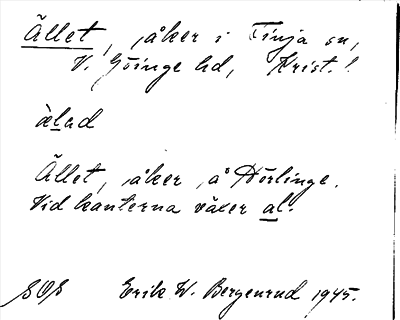 Ället, åker i Finja sn,
V. Göinge hd, Krist. l
älad
Ället, åker å Hörlinge.
Vid kanterna växer al.
SOS Erik W. Bergenrud 1945.